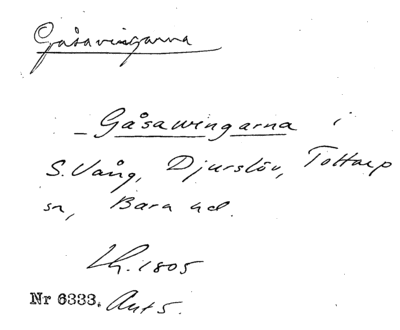 Gåsavingarna
– Gåsawingarna i
S. Vång, Djurslöv, Tottarp
sn, Bara hd.
Lh. 1805
Nr 6333. Ant 5.